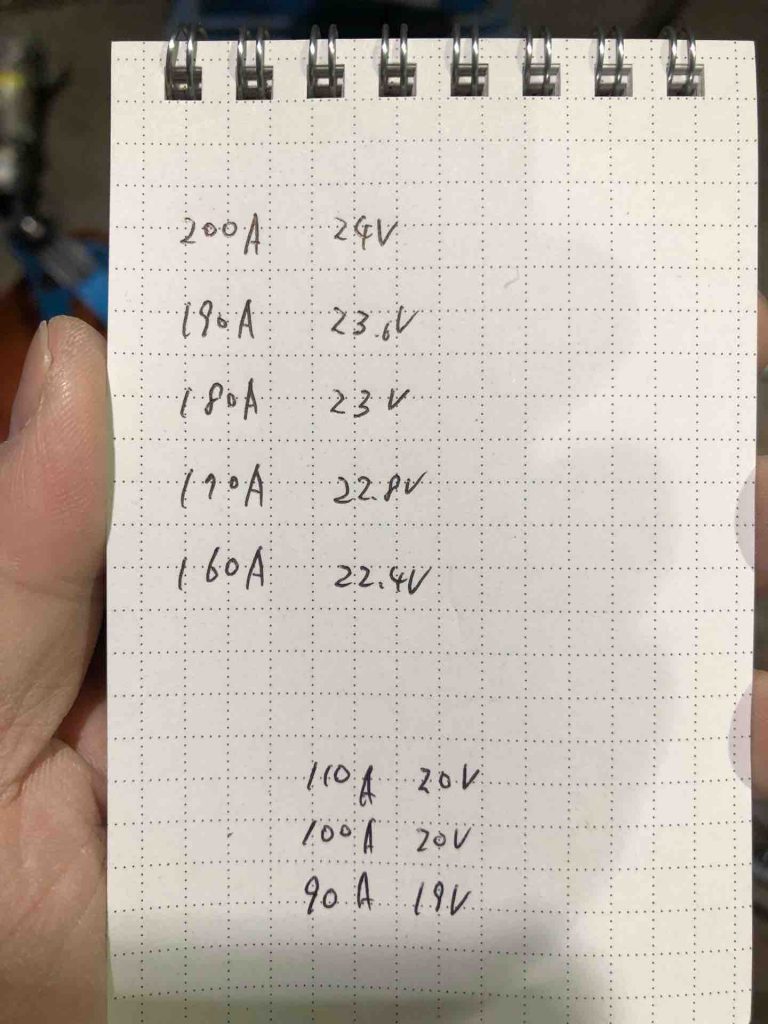 200A 24V
190A 23.6V
180A 23V
170A 22.8V
160A 22.4V
110A 20V
100A 20V
90A 19V